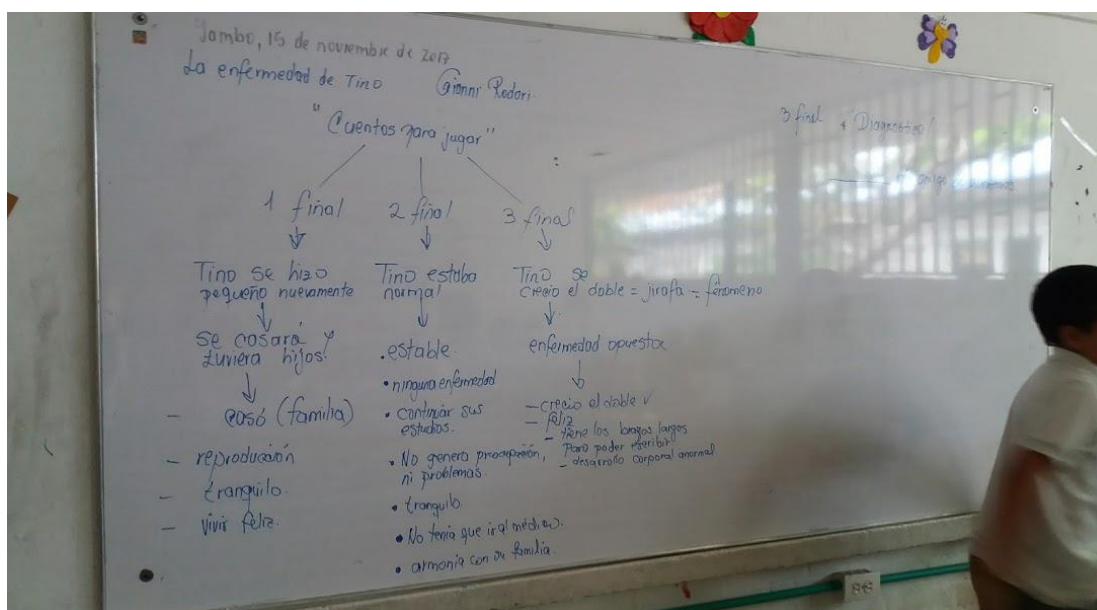 Yambo, 15 de noviembre de 2017
La enfermedad de Tino Gianni Rodari.
"Cuentos para jugar"
1 final
Tino se hizo
pequeño nuevamente
se casará y
tuviera hijos.
- casó (familia)
- reproducción
- tranquilo.
- vivir feliz.
2 final
Tino estaba
normal
.estable.
• ninguna enfermedad
• continuar sus
estudios.
• No genero preocupación,
ni problemas.
• tranquilo.
• No tenía que ir al médico.
• armonia con su familia.
3 final
Tino se
crecio el doble = jirafa = fenomeno
enfermedad opuesta
- crecio el doble ✓
- feliz
- tiene los brazos largos
Para poder escribir
- desarrollo corporal anormal
3 final + "Diagnostico"